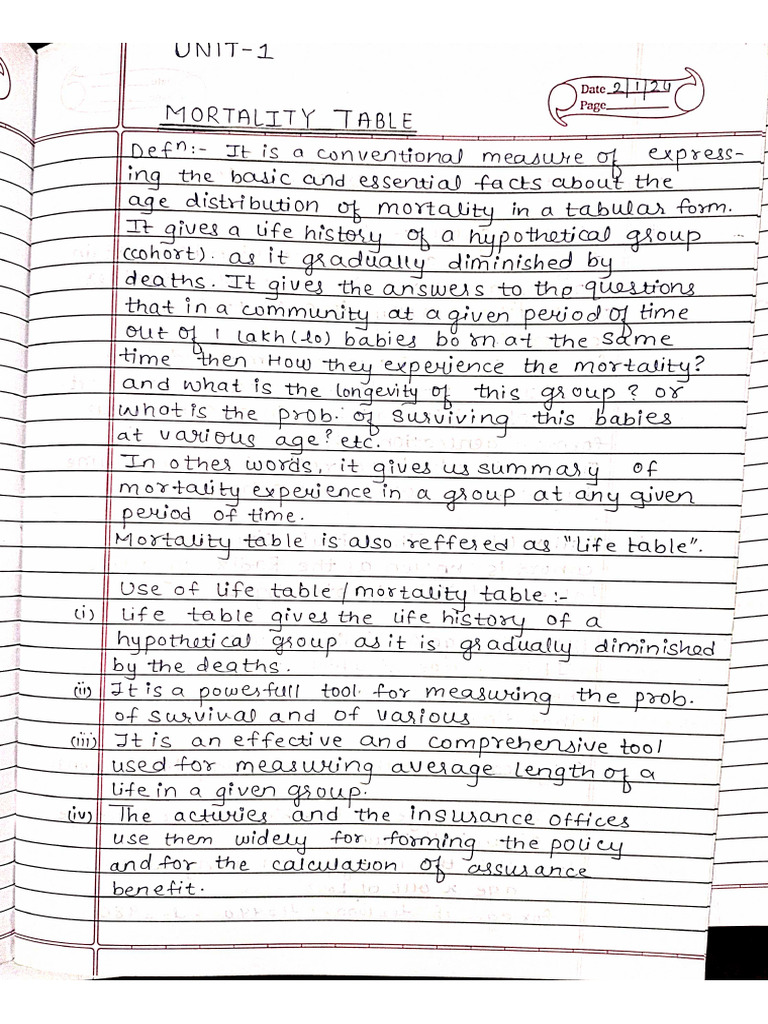 UNIT-1
Date 2/1/24
Page
MORTALITY TABLE
Defⁿ:- It is a conventional measure of express-
ing the basic and essential facts about the
age distribution of mortality in a tabular form.
It gives a life history of a hypothetical group
(cohort). as it gradually diminished by
deaths. It gives the answers to the questions
that in a community at a given period of time
out of 1 lakh (lo) babies born at the same
time then How they experience the mortality?
and what is the longevity of this group? or
what is the prob. of surviving this babies
at various age? etc.
In other words, it gives us summary of
mortality experience in a group at any given
period of time.
Mortality table is also reffered as "Life table".
Use of life table / mortality table :-
(i) Life table gives the life history of a
hypothetical group as it is gradually diminished
by the deaths.
(ii) It is a powerfull tool for measuring the prob.
of survival and of various
(iii) It is an effective and comprehensive tool
used for measuring average length of a
life in a given group.
(iv) The acturies and the insurance offices
use them widely for forming the policy
and for the calculation of assurance
benefit.